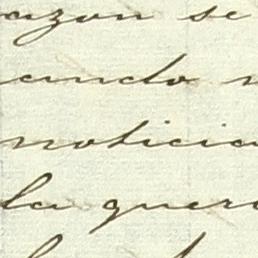 azon se
ando
noticia
la quer